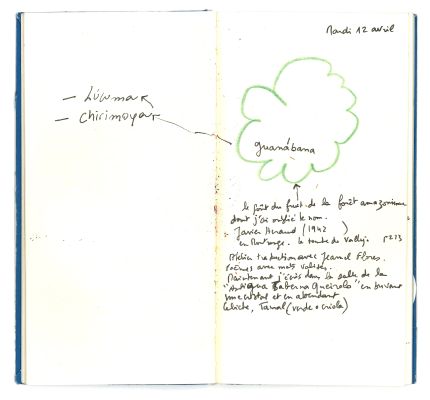 - Lúcuma
- Chirimoya
Mardi 12 avril
guanábana
le goût du fruit de la forêt amazonienne
dont j'ai oublié le nom.
Javier Heraud (1942 )
en Montrouge. la tombe de Vallejo
Atelier traduction avec Jeamel Flores.
Poèmes avec mots valises.
Maintenant j'écris dans la salle de la
"Antigua Taberna Queirolo" en buvant
une et en attendant
Ceviche, Tamal (verde o criolo)